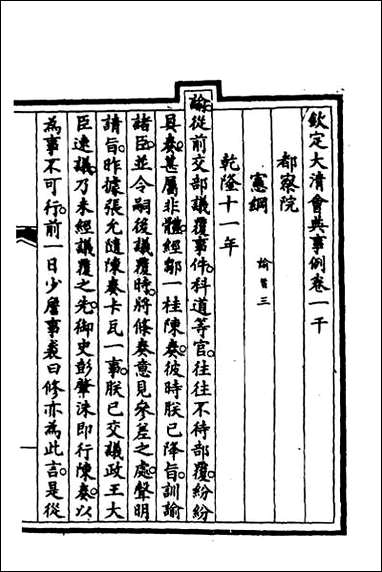 欽定大清會典事例卷一千
都察院
憲綱 諭旨三
乾隆十一年
諭從前交部議覆事件。科道等官。往往不待部覆。紛紛
具奏。甚屬非體。經鄒一桂陳奏。彼時朕已降旨。訓諭
諸臣。並令嗣後議覆時。將條奏意見參差之處。聲明
請旨。昨據張允隨陳奏卡瓦一事。朕已交議政王大
臣速議。乃未經議覆之先。御史彭肇洙即行陳奏。以
為事不可行。前一日少詹事裘曰修亦為此言。是從